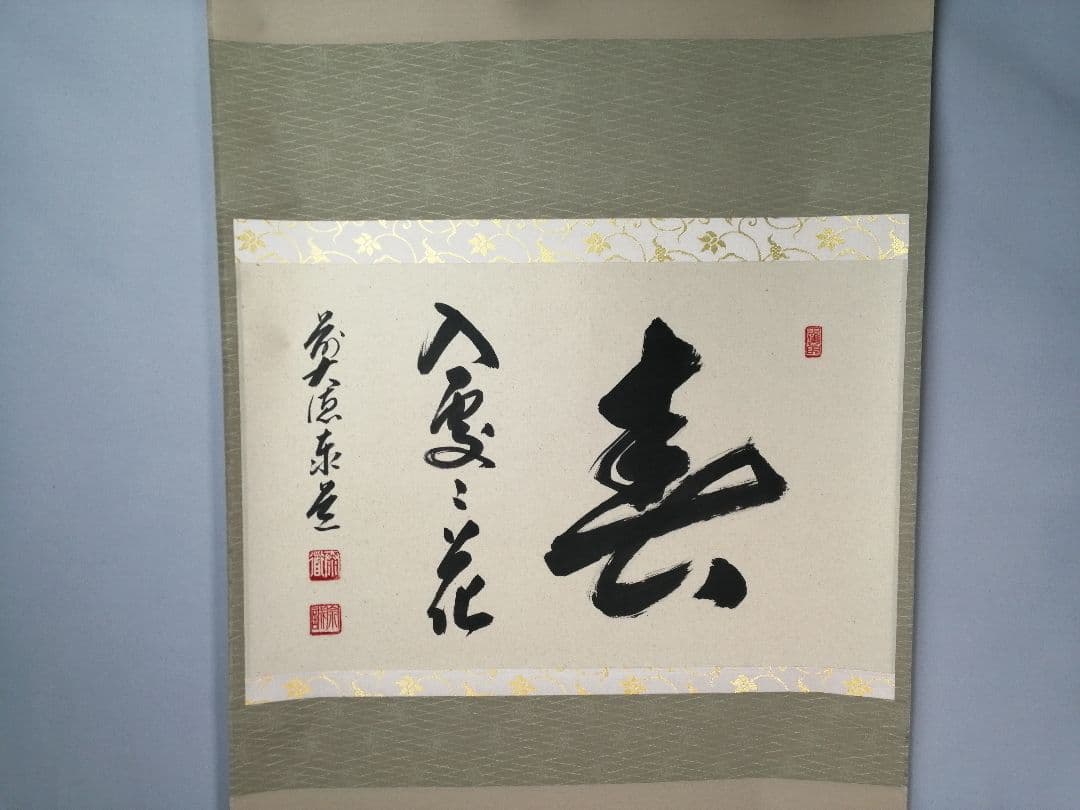 春
入處々花
前大徳泰道